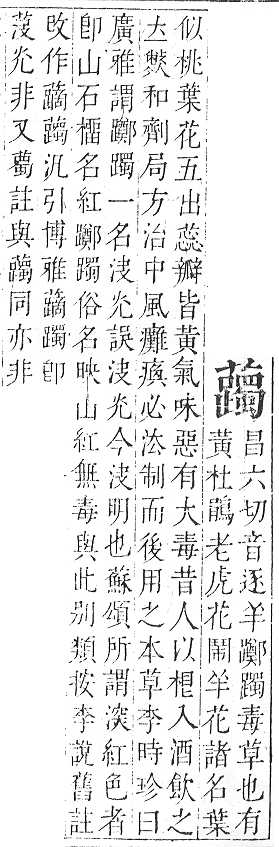 䕽
昌六切音逐羊躑躅毒草也有
黃杜鵑老虎花鬧羊花諸名葉
似桃葉花五出蕊瓣皆黃氣味惡有大毒昔人以根入酒飲之
立獘和劑局方治中風癱瘓必法制而後用之本草李時珍曰
廣雅謂躑躅一名决光誤决光今决明也蘇頌所謂深紅色者
卽山石榴名紅躑躅俗名映山紅無毒與此别類按李說舊註
改作䕲䕽汎引博雅䕲躅卽
光非又薥註與䕽同亦非